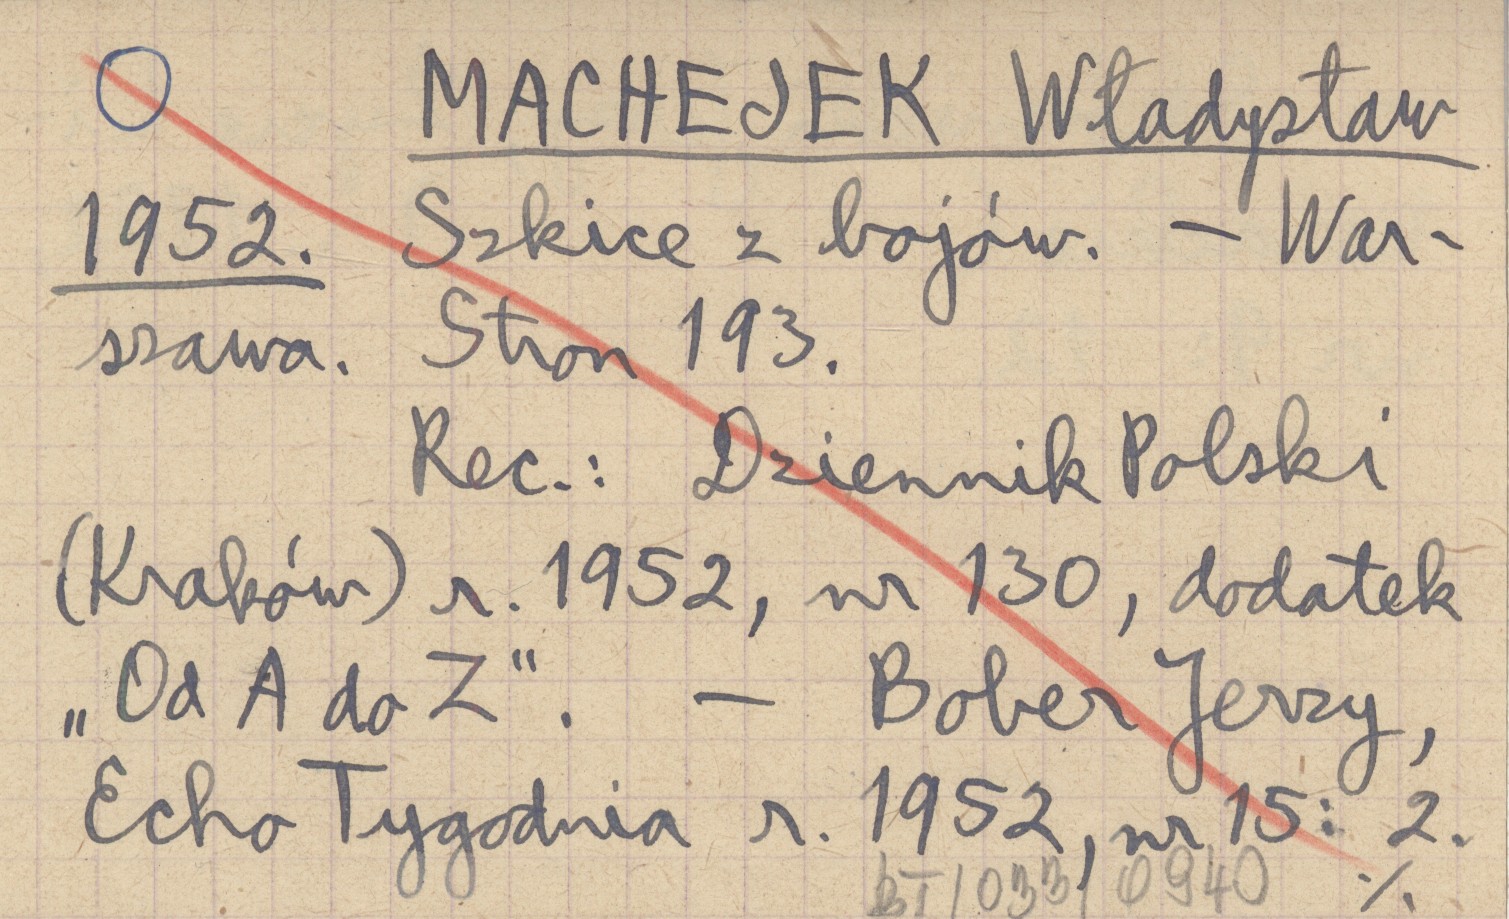 MACHEJEK Władysław
1952. Szkice z bojów. – War-
szawa. Stron 193.
Rec.: Dziennik Polski
(Kraków) r. 1952, nr 130, dodatek
„Od A do Z“. – Bober Jerzy,
Echo Tygodnia r. 1952, nr 15: 2.
BI/033/0940 ./.